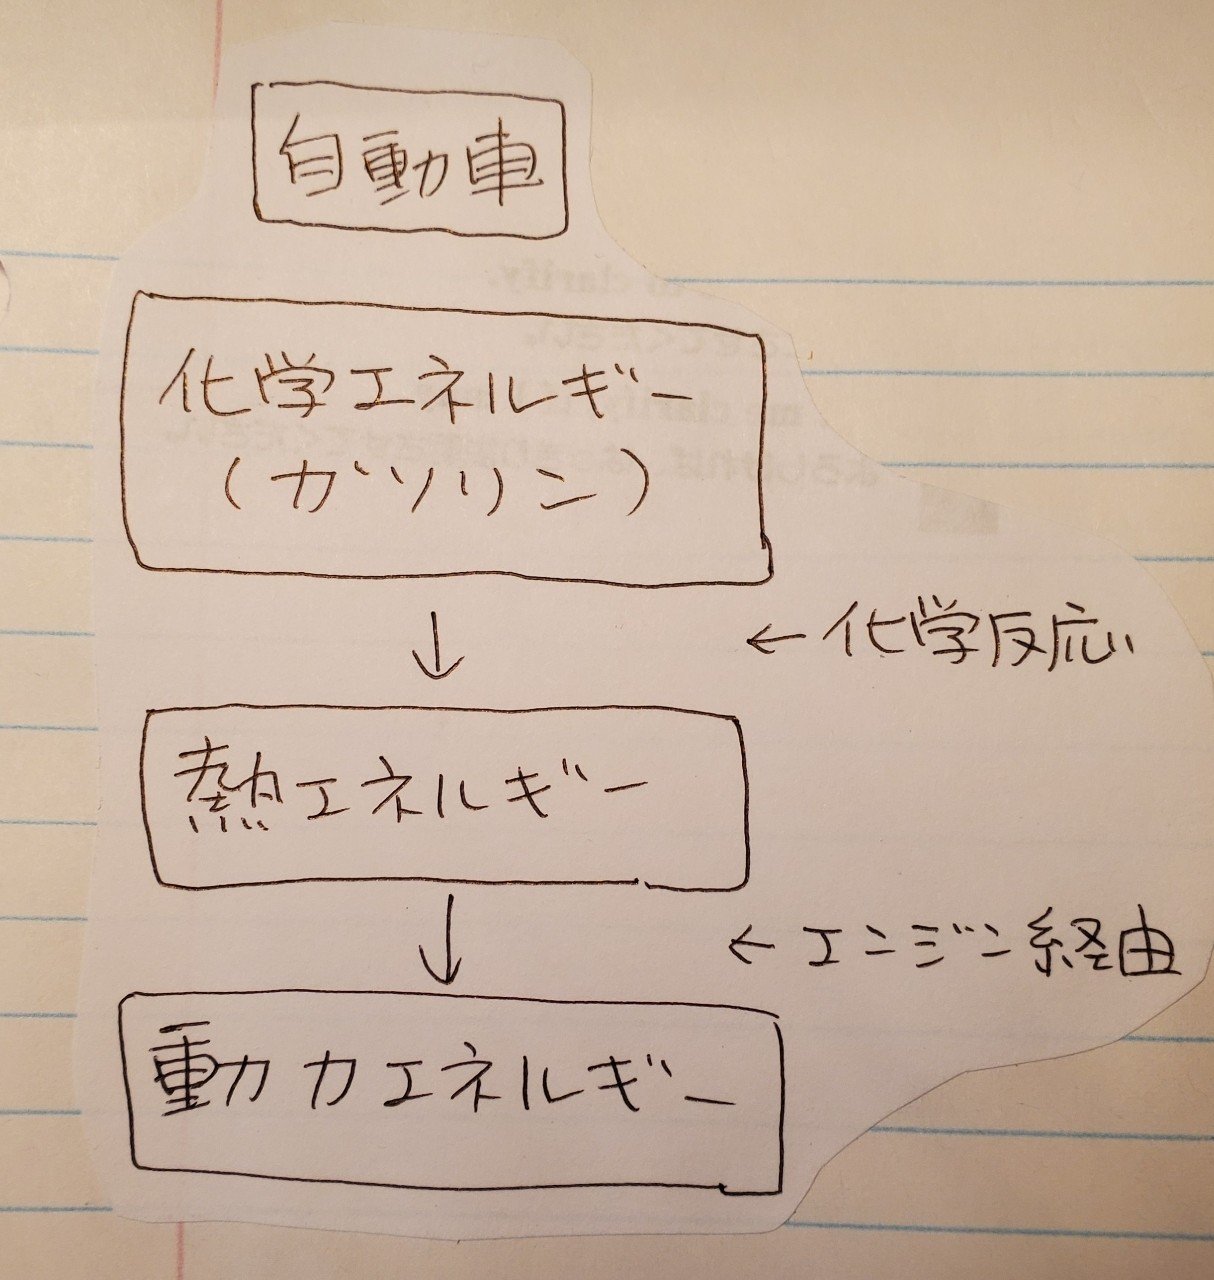 自動車
化学エネルギー
(ガソリン)
↓
← 化学反応
熱エネルギー
↓
← エンジン経由
動力エネルギー